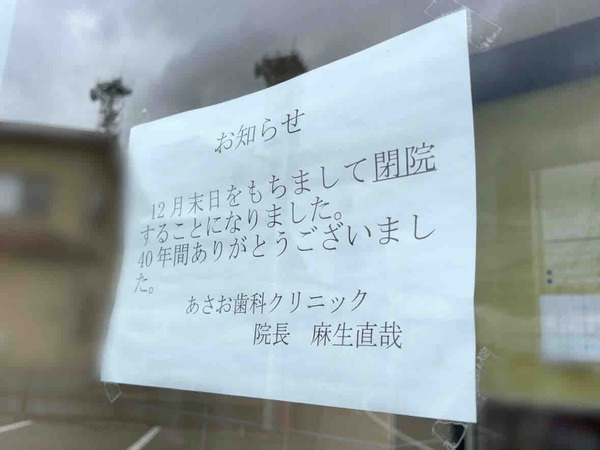 お知らせ
12月末日をもちまして閉院
することになりました。
40年間ありがとうございまし
た。
あさお歯科クリニック
院長　麻生直哉